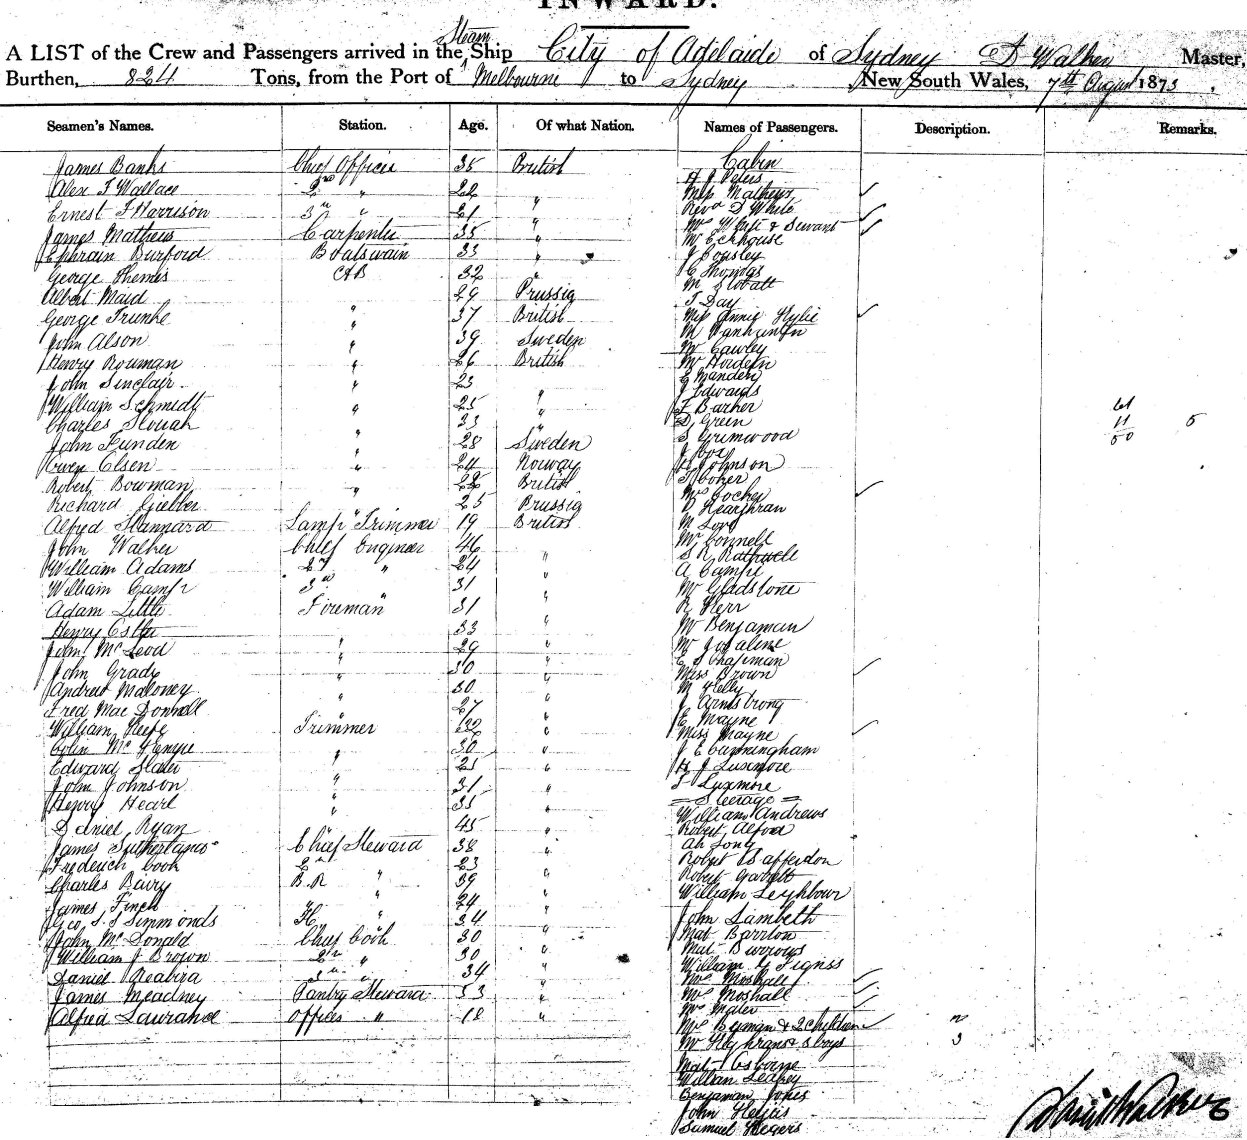 INWARD.
A LIST of the Crew and Passengers arrived in the Steam Ship City of Adelaide of Sydney D Walker Master,
Burthen, 824 Tons, from the Port of Melbourne to Sydney New South Wales, 7th August 1873.
Seamen's Names. Station. Age. Of what Nation. Names of Passengers. Description. Remarks.
James Banks Chief Officer 35 British Cabin
Alex F Wallace 2nd " 22 H J Peters
Ernest F Harrison 3rd " 21 " Miss Mathews
James Mathews Carpenter 35 " Revd D White
Ephraim Burford Boatswain 33 " Mrs White & Servant
George Themis AB 32 " Mr Eckhouse
Albert Maid " 29 Prussia J Cousley
George Trunke " 37 British C Thomas
John Alson " 39 Sweden M Slobatt
Henry Rowman " 26 British T Day
John Sinclair " 23 Miss Annie Hylie
William Schmidt " 25 " M Vanhunton
Charles Slouah " 33 " Mr Cawley
John Funden " 28 Sweden Mr Hordern
Owen Olsen " 24 Norway E Manders
Robert Bowman " 22 British J Edwards
Richard Giebber " 25 Prussia F Barker
Alfred Stannard Lamp Trimmer 19 British D Green
John Walker Chief Engineer 46 S Grimwood
William Adams 2nd " 24 " J Cox
William Camp 3rd 31 " Johnson
Adam Little Fireman 31 " T Coker
Henry Esther 33 " Mrs Jocher
John McLeod " 29 " D Hearghran
John Grady " 30 " M Love
Andrew Maloney " 30 " Mr Connell
Fred MacDonnell " 27 " S R Rathwell
William Keefe Trimmer 32 " A Campe
Colin McKenzie 30 " Mr Gladstone
Edward Slater " 25 " R Kerr
John Johnson " 31 " Mr Benjaman
Henry Hearl " 35 " Mr Josaline
Daniel Ryan " 45 " C S Chapman
James Sutherland Chief Steward 38 " Miss Brown
Frederich Cook 2nd 23 " M Kelly
Charles Bairy B.R " 39 " J Armstrong
James Finch " 24 " E Mayne
Geo. S. J Simmonds H " 34 " Miss Mayne
John McDonald Chief Cook 30 " J E Cunningham
William J Brown 2nd " 30 " H J Luxmore
Daniel Reabira 3rd " 34 " L Luxmore
James Meadney Pantry Steward 33 " = Steerage =
Alfred Laurance Officers " 18 " William Andrews
Robert Alfood
Ah Long
Robert Cafferdon
Robert Garrett
William Leyhbour
John Lambeth
Mat Barrton
Mat Burrows
William G Tignss
Mrs Moshall
Mrs Moshall
Mrs Maler
Mrs Beeman & 2 children 2
Mr Heghrans & 3 boys 3
Mat Osborne
William Leapey
Benjaman Jones
John Helius
Samuel Hegers
61
11
50
5
David Walker